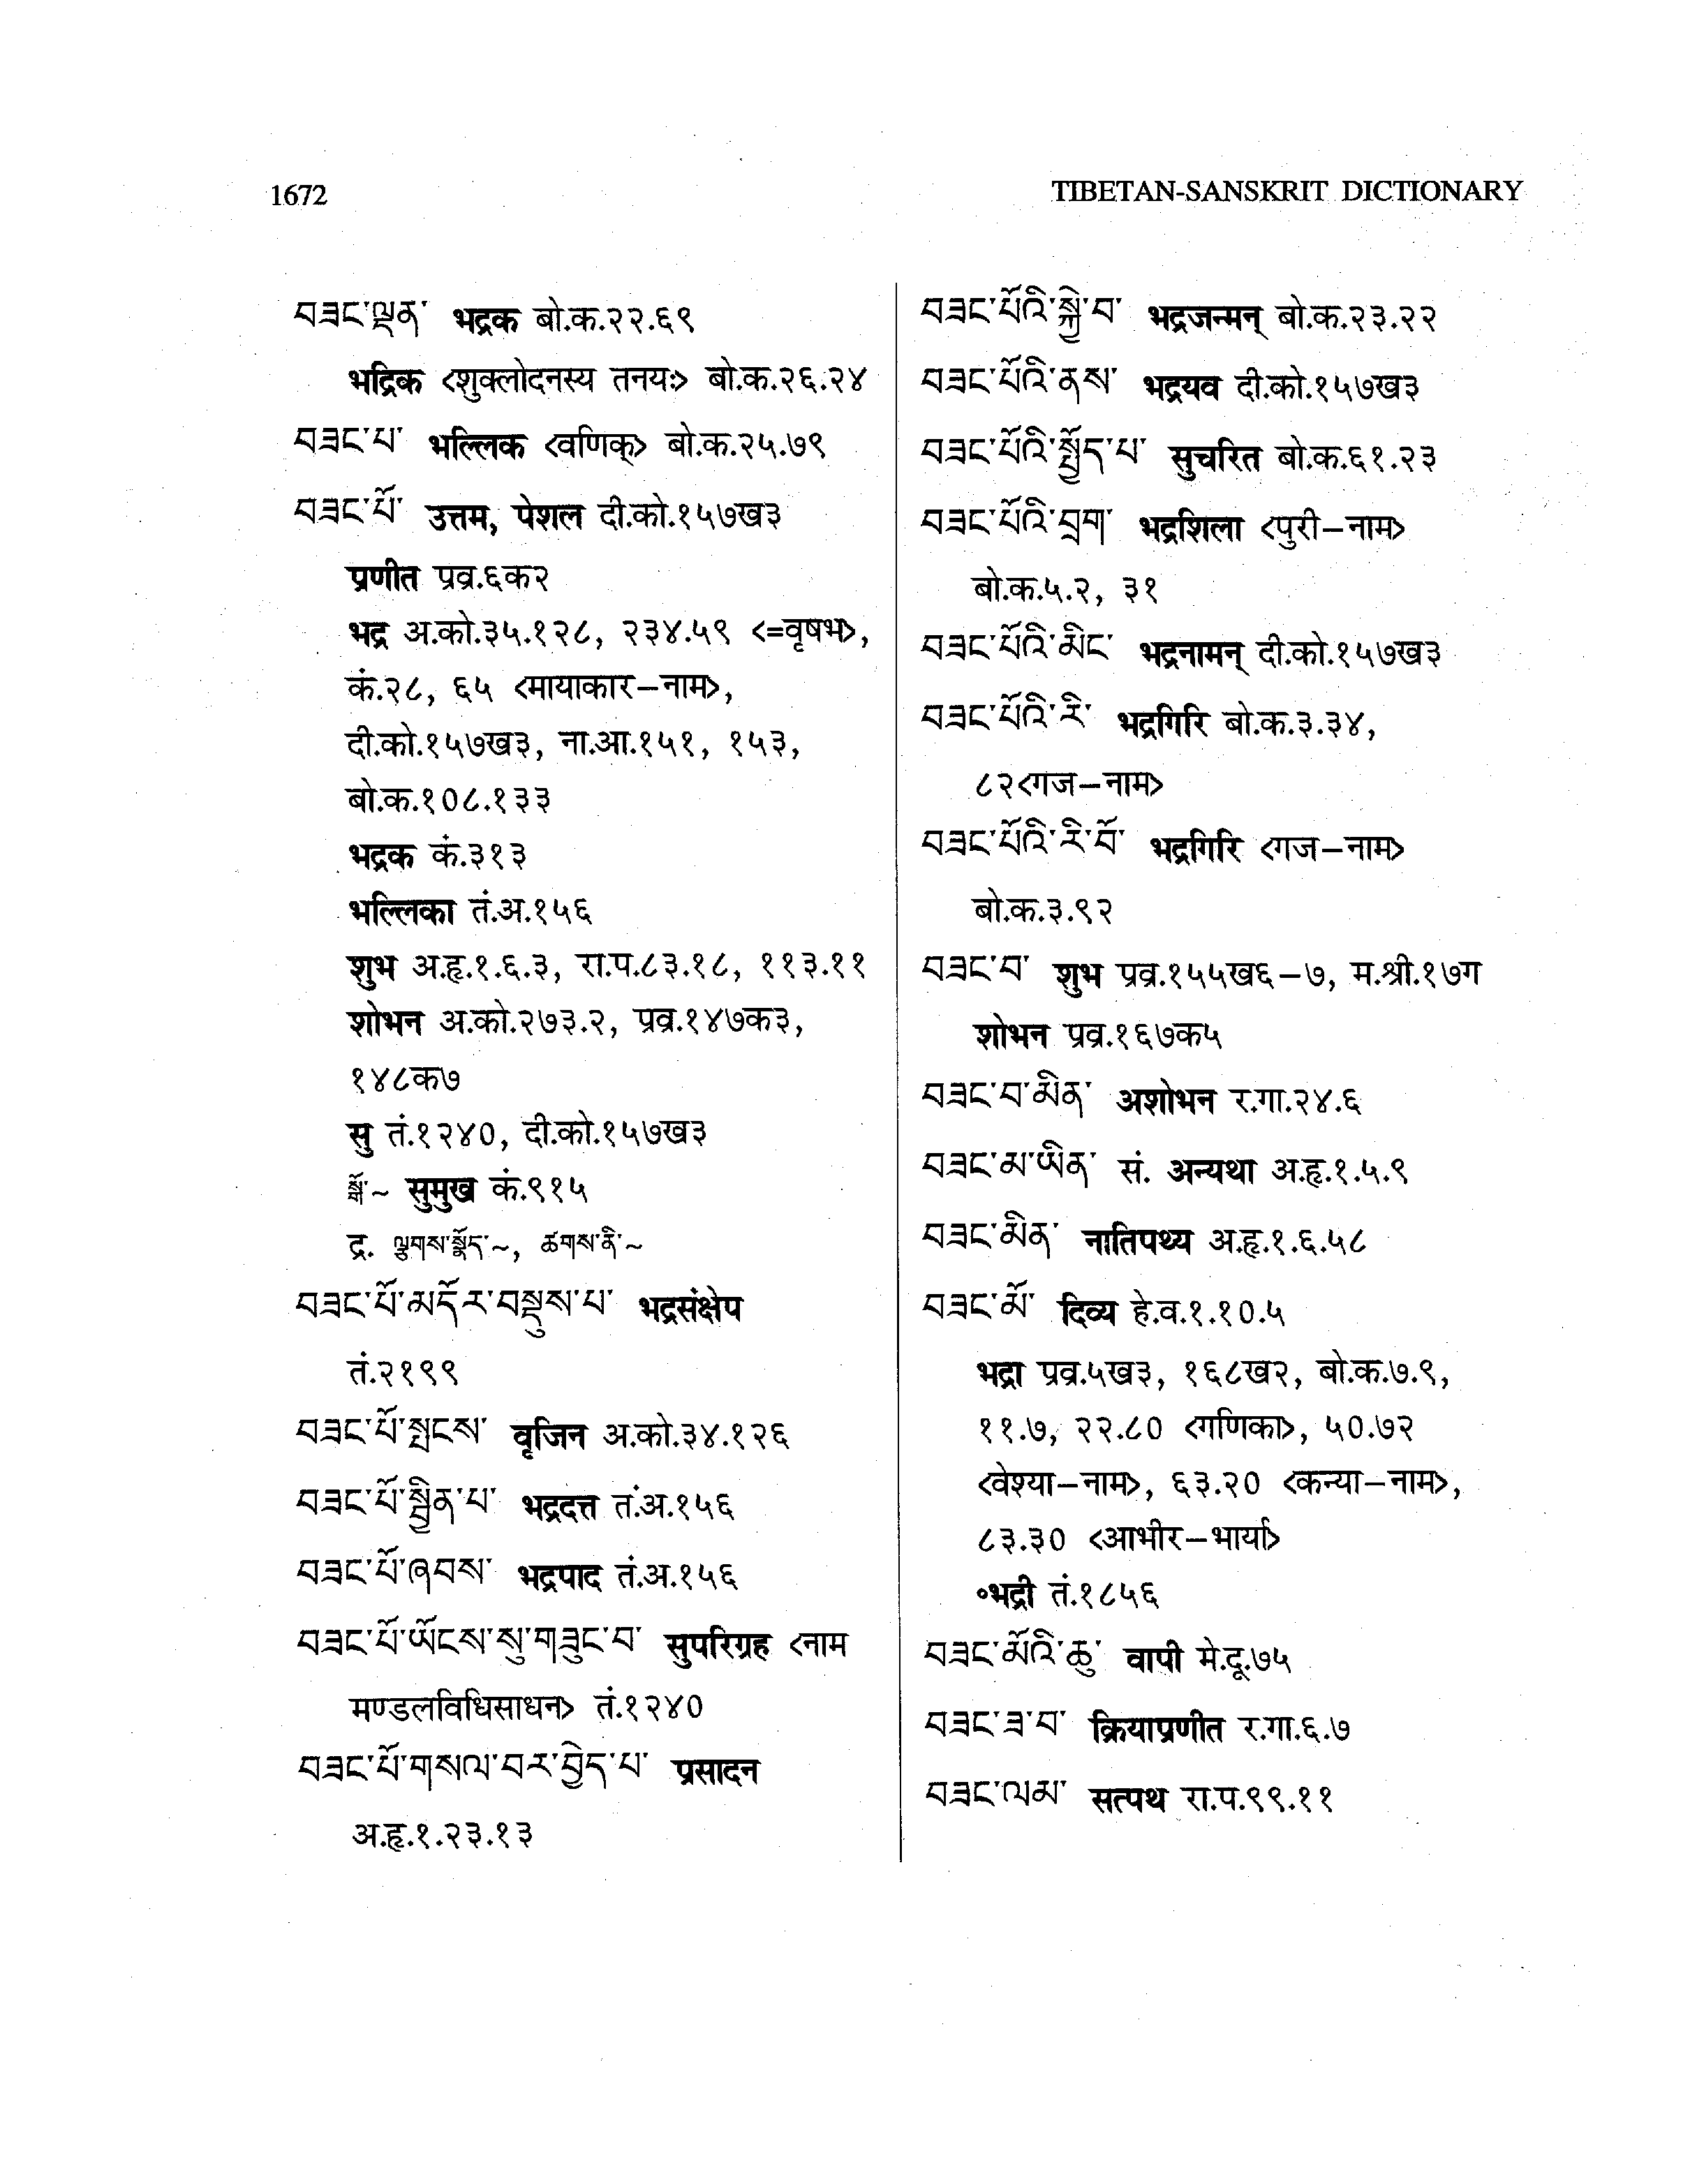 1672
TIBETAN-SANSKRIT DICTIONARY
བཟང་ལྡན་ भद्रक बो.क.२२.६९
भद्रिक <शुक्लोदनस्य तनयः> बो.क.२६.२४
བཟང་པ་ भल्लिक <वणिक्> बो.क.२५.७९
བཟང་པོ་ उत्तम, पेशल दी.को.१५७ख३
प्रणीत प्रव्र.६क२
भद्र अ.को.३५.१२८, २३४.५९ <=वृषभ>,
कं.२८, ६५ <मायाकार–नाम>,
दी.को.१५७ख३, ना.आ.१५१, १५३,
बो.क.१०८.१३३
भद्रक कं.३१३
भल्लिका तं.अ.१५६
शुभ अ.हृ.१.६.३, रा.प.८३.१८, ११३.११
शोभन अ.को.२७३.२, प्रव्र.१४७क३,
१४८क७
सु तं.१२४०, दी.को.१५७ख३
སྒོ་~ सुमुख कं.९१५
द्र. ལྕུགས་སྣོད་~, ཚགས་ནི་~
བཟང་པོ་མདོར་བསྡུས་པ་ भद्रसंक्षेप
तं.२१९९
བཟང་པོ་སྤངས་ वृजिन अ.को.३४.१२६
བཟང་པོ་སྦྱིན་པ་ भद्रदत्त तं.अ.१५६
བཟང་པོ་ཞབས་ भद्रपाद तं.अ.१५६
བཟང་པོ་ཡོངས་སུ་གཟུང་བ་ सुपरिग्रह <नाम
मण्डलविधिसाधन> तं.१२४०
བཟང་པོ་གསལ་བར་བྱེད་པ་ प्रसादन
अ.हृ.१.२३.१३
བཟང་པོའི་སྐྱེ་བ་ भद्रजन्मन् बो.क.२३.२२
བཟང་པོའི་ནས་ भद्रयव दी.को.१५७ख३
བཟང་པོའི་སྤྱོད་པ་ सुचरित बो.क.६१.२३
བཟང་པོའི་བྲག་ भद्रशिला <पुरी–नाम>
बो.क.५.२, ३१
བཟང་པོའི་མིང་ भद्रनामन् दी.को.१५७ख३
བཟང་པོའི་རི་ भद्रगिरि बो.क.३.३४,
८२<गज–नाम>
བཟང་པོའི་རི་བོ་ भद्रगिरि <गज–नाम>
बो.क.३.९२
བཟང་བ་ शुभ प्रव्र.१५५ख६–७, म.श्री.१७ग
शोभन प्रव्र.१६७क५
བཟང་བ་མིན་ अशोभन र.गा.२४.६
བཟང་མ་ཡིན་ सं. अन्यथा अ.हृ.१.५.९
བཟང་མིན་ नातिपथ्य अ.हृ.१.६.५८
བཟང་མོ་ दिव्य हे.व.१.१०.५
भद्रा प्रव्र.५ख३, १६८ख२, बो.क.७.९,
११.७, २२.८० <गणिका>, ५०.७२
<वेश्या–नाम>, ६३.२० <कन्या–नाम>,
८३.३० <आभीर–भार्या>
॰भद्री तं.१८५६
བཟང་མོའི་ཆུ་ वापी मे.दू.७५
བཟང་ཟ་བ་ क्रियाप्रणीत र.गा.६.७
བཟང་ལམ་ सत्पथ रा.प.९९.११